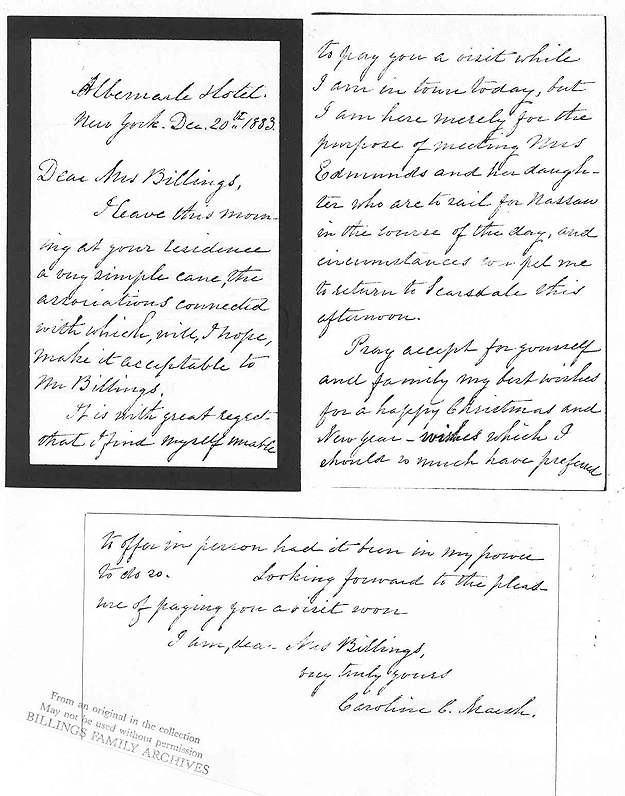 Albemarle Hotel.
New York. Dec. 20th. 1883.
Dear Mrs Billings,
I leave this morn-
ing at your residence
a very simple cane, the
associations connected
with which, will, I hope,
make it acceptable to
Mr Billings.
It is with great regret
that I find myself unable
to pay you a visit while
I am in town today, but
I am here merely for the
purpose of meeting Mrs
Edmunds and her daugh-
ter who are to sail for Nassau
in the course of the day, and
circumstances compel me
to return to Scarsdale this
afternoon.
Pray accept for yourself
and family my best wishes
for a happy Christmas and
New Year - wishes which I
should so much have preferred
to offer in person had it been in my power
to do so. Looking forward to the pleas-
ure of paying you a visit soon
I am, dear Mrs Billings,
very truly yours
Caroline C. Marsh.
From an original in the collection
May not be used without permission
BILLINGS FAMILY ARCHIVES